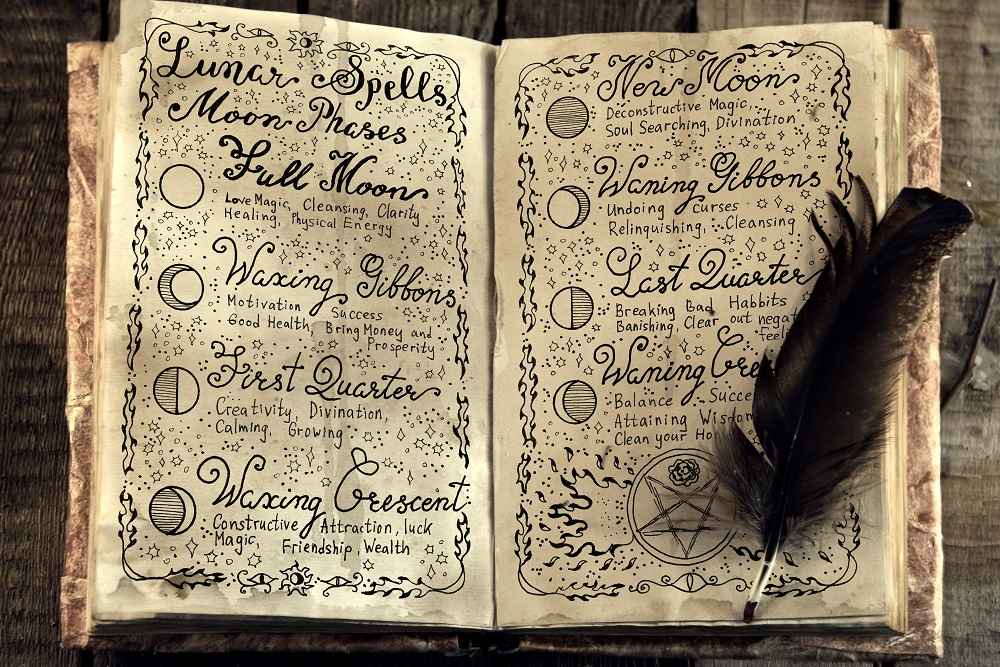 Lunar Spells
Moon Phases
Full Moon
Love Magic, Cleansing, Clarity
Healing, Physical Energy
Waxing Gibbons
Motivation Success
Good Health, Bring Money and
Prosperity
First Quarter
Creativity, Divination,
Calming, Growing
Waxing Crescent
Constructive Attraction, luck
Magic, Friendship, Wealth
New Moon
Deconstructive Magic,
Soul Searching, Divination
Waning Gibbons
Undoing curses
Relinquishing, Cleansing
Last Quarter
Breaking Bad Habbits
Banishing, Clear out
Waning
Balance
Attaining
Clean your